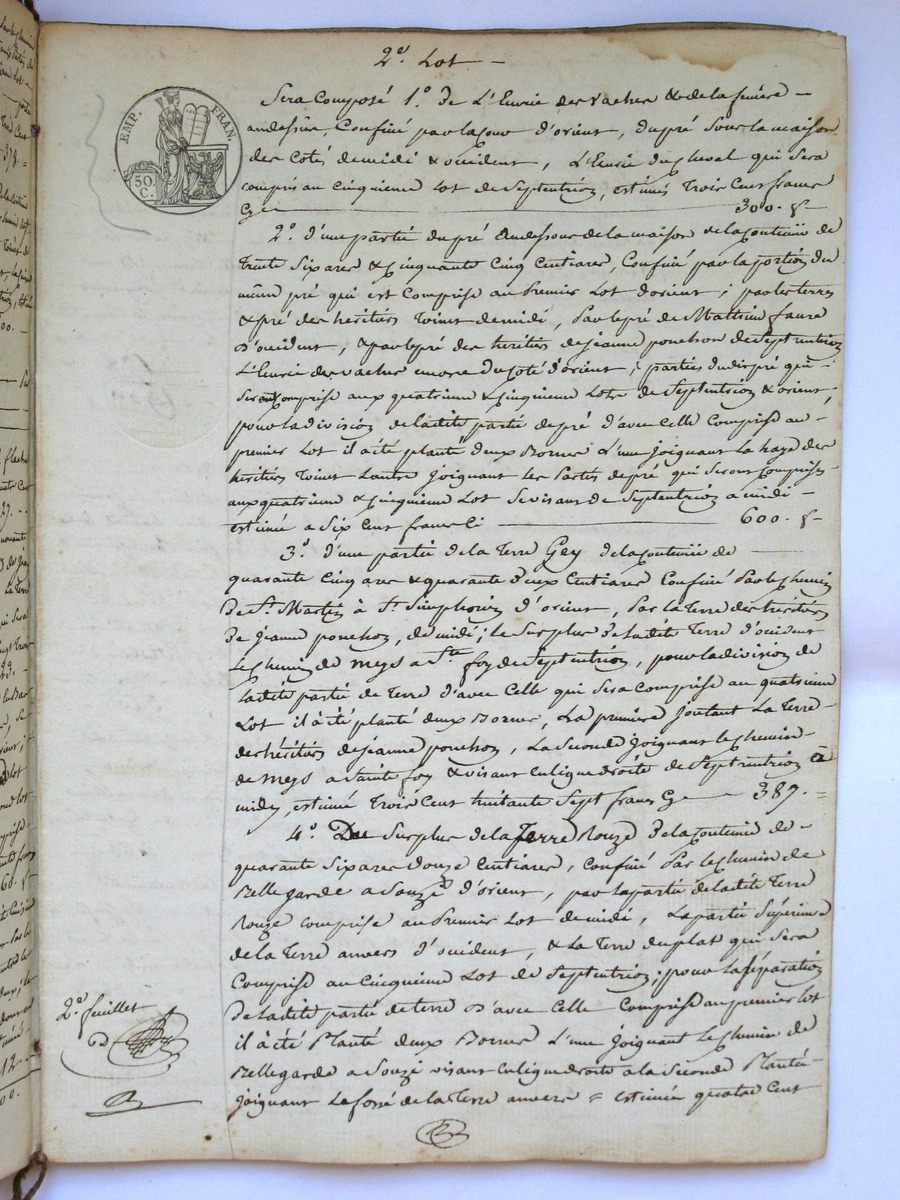 2.e Lot —
EMP. FRAN.
50. C.
Sera Composé 1.o de L'Eurie des vaches & de la feniere —
au dessus, Confiné par la Cour d'orient, du pré sous la maison
des Cotés de midi & occident, L'Eurie du Cheval qui sera
compris au Cinquieme Lot de Septentrion, estimés Trois Cent francs
Cy — 300. f
2.o d'une partie du pré au dessous de la maison de la Contenüe de
Trente Six ares & Cinquante Cinq Centiares, Confiné par la portion du
même pré qui est Comprise au Premier Lot d'orient; par les terres
& pré des heritiers Toinet de midi, Par le pré de Mathieu faure
d'occident, & par le pré des heritiers de jeanne ponchon de Septentrion
L'Eurie des vaches encore du Coté d'orient; parties dudit pré qui
seront Comprise aux quatrieme & Cinquieme Lots de Septentrion & orient,
pour la division de ladite partie de pré d'avec Celle Comprise au
premier Lot il a été planté deux Bornes L'une joignant la haye des
heritiers Toinet Lautre joignant les Parties de pré qui seront Comprises
aux quatrieme & Cinquieme Lot se visant de Septentrion a midi —
estimée a Six Cent francs Ci — 600. f
3.o d'une partie de la Terre Gey de la Contenüe de —
quarante Cinq ares & quarante deux Centiares Confiné Par le Chemin
de St. Martin à St. Simphorien d'orient, Par la Terre des heritiers
de jeanne ponchon, de midi; Le Surplus de ladite Terre d'occident
Le Chemin de Meys a Ste. foy de Septentrion, pour la division de
ladite partie de Terre d'avec Celle qui sera Comprise au quatrieme
Lot il à été planté deux Bornes, La premiere joutant La Terre
des héritiers de jeanne ponchon, La Seconde joignant le Chemin
de Meys a Sainte foy & visant en ligne droite de Septentrion à
midy, estimée Trois Cent huitante Sept francs Cy — 387. =
4.o Du Surplus de la Terre Rouze de la Contenüe de
quarante Six ares Douze Centiares, Confiné Par le Chemin de
Bellegarde a Souzi d'orient, par la partie de ladite Terre
Rouze comprise au Premier Lot de midi, La partie Supérieure
de la Terre anvers d'occident, & La Terre du plat qui sera
Comprise au Cinquieme Lot de Septentrion; pour la Séparation
de ladite partie de terre d'avec Celle Comprise au premier lot
il à été Planté deux Bornes L'une joignant Le Chemin de
Bellegarde a Souzi visant en ligne droite a la Seconde Plantée
joignant Le fossé de la Terre anvers = estimée quatre Cent
2.e feuillet